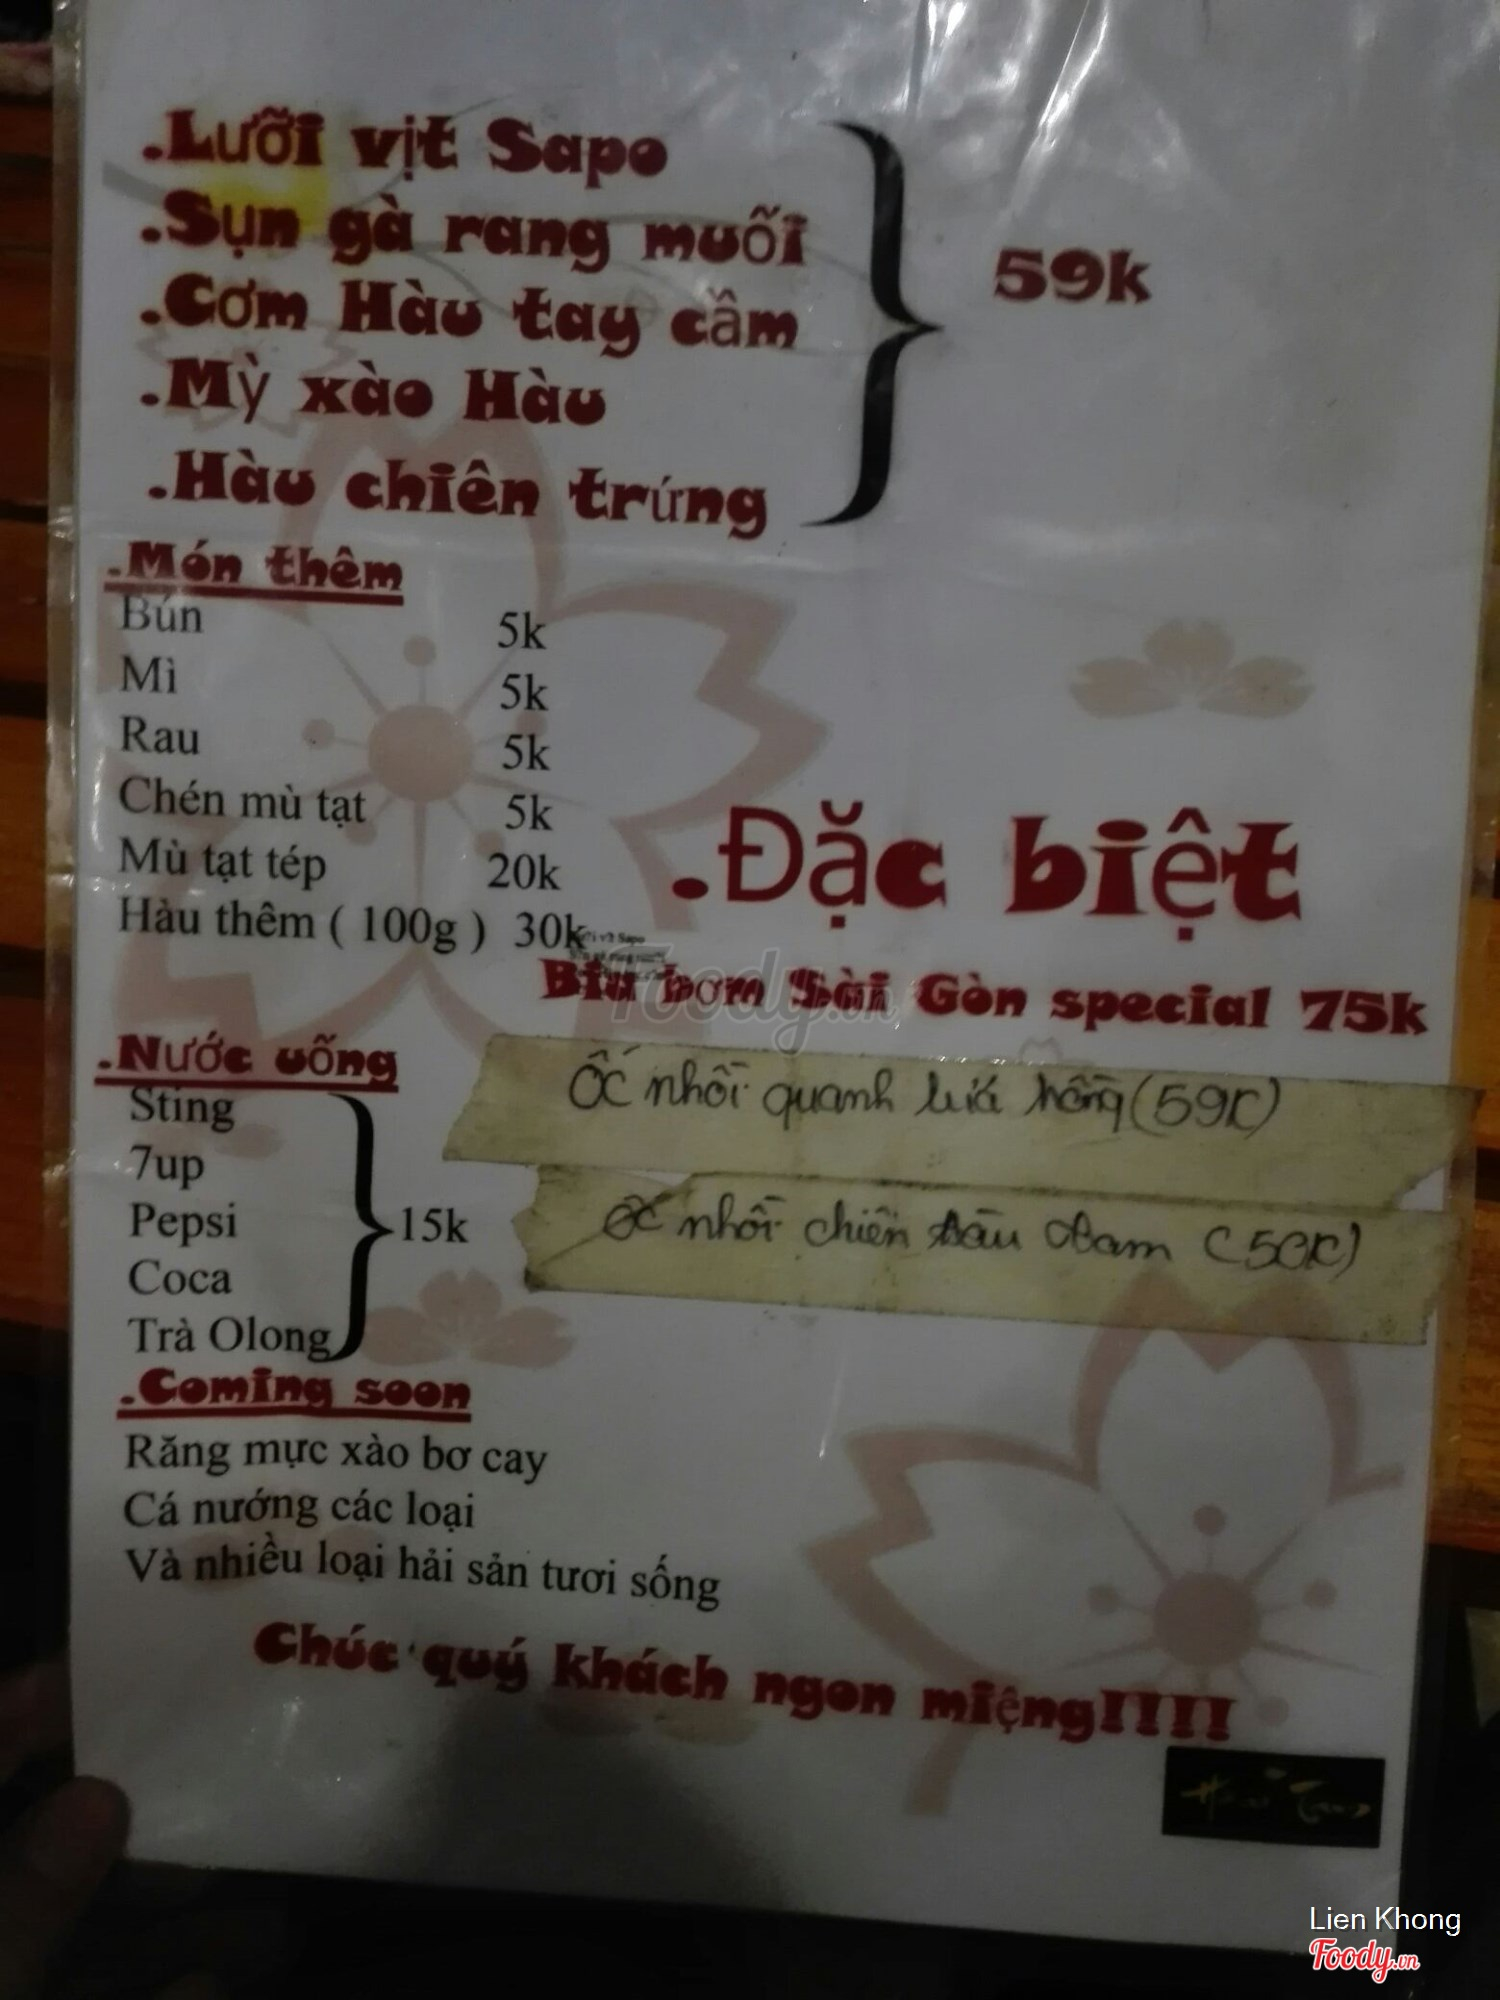 .Lưỡi vịt Sapo
.Sụn gà rang muỗi
.Cơm Hàu tay cầm
.Mỳ xào Hàu
.Hàu chiên trứng
59k
.Món thêm
Bún 5k
Mì 5k
Rau 5k
Chén mù tạt 5k
Mù tạt tép 20k
Hàu thêm ( 100g ) 30k
.Đặc biệt
Bia bơm Sài Gòn special 75k
Ốc nhồi quanh lưá hồng (59K)
Ốc nhồi chiên (50K)
.Nước uống
Sting
7up
Pepsi
Coca
Trà Olong
15k
.Coming soon
Răng mực xào bơ cay
Cá nướng các loại
Và nhiều loại hải sản tươi sống
Chúc quý khách ngon miệng!!!!!
Foody.vn
Lien Khong
Foody.vn